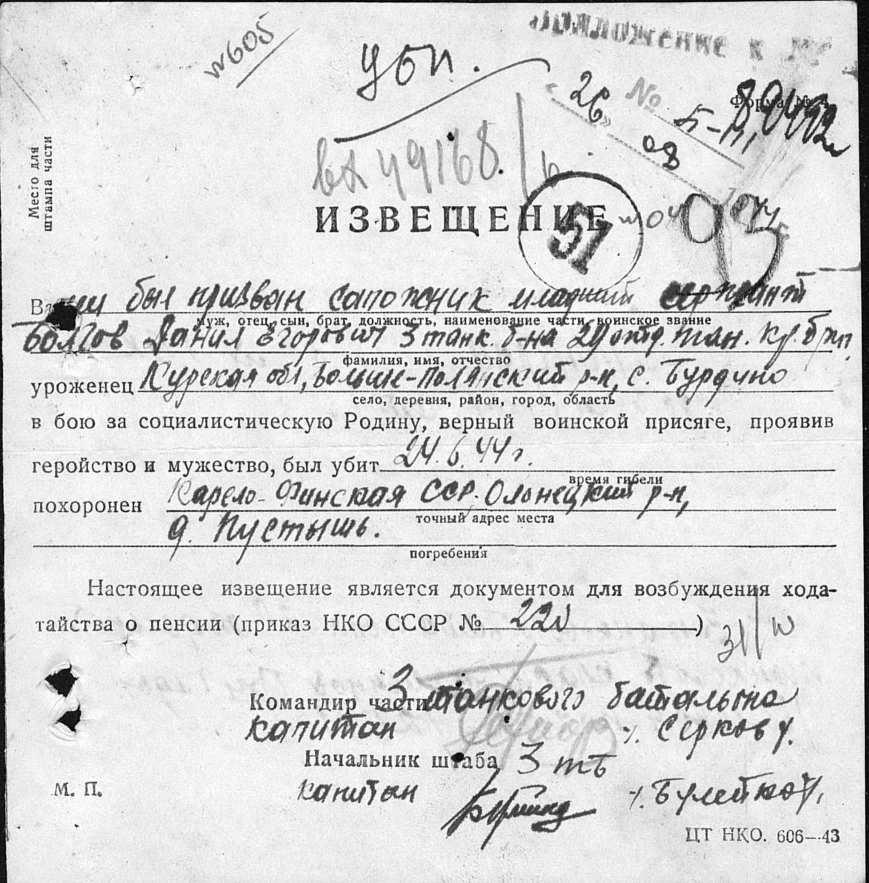 №605
Приложение к №
Убп.
Форма №
" 26 " 08
вх 49168
Место для
штампа части
ИЗВЕЩЕНИЕ
51
Ваш был призван сапожник младший сержант
муж, отец, сын, брат, должность, наименование части, воинское звание
Болгов Данил Егорович 3 танк. б-на 29 отд. тан. кр. бр.
фамилия, имя, отчество
уроженец Курская обл, Больше-Полянский р-н, с. Бурдино
село, деревня, район, город, область
в бою за социалистическую Родину, верный воинской присяге, проявив
геройство и мужество, был убит 24.6.44 г.
время гибели
похоронен Карело-Финская ССР. Олонецкий р-н,
точный адрес места
д. Пустышь.
погребения
Настоящее извещение является документом для возбуждения хода-
тайства о пенсии (приказ НКО СССР № 220 )
Командир части 3 танкового батальона
капитан /. Серков /.
Начальник штаба 3 тб
М. П. капитан
ЦТ НКО. 606—43